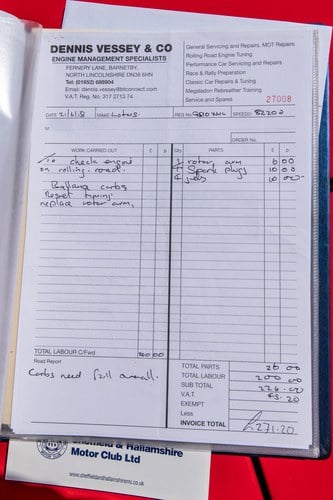 DENNIS VESSEY & CO
ENGINE MANAGEMENT SPECIALISTS
FERNERY LANE, BARNETBY,
NORTH LINCOLNSHIRE DN38 6HN
Tel: (01652) 688904
Email: dennis.vessey@btconnect.com
V.A.T. Reg. No. 317 2713 74
General Servicing and Repairs, MOT Repairs
Rolling Road Engine Tuning
Performance Car Servicing and Repairs
Race & Rally Preparation
Classic Car Repairs & Tuning
Megaladon Rebreather Training
Service and Spares 27008
DATE MAKE Lotus. REG.No. SPEEDO 82202
M
ORDER No.
WORK CARRIED OUT £ p QTY. PARTS £ p
To check engine 1 rotor arm 6 00
on rolling road. 4 Spark plugs 10 00
4 jets 10 00
Ballance carbs
Reset timing
replace rotor arm.
TOTAL LABOUR C/Fwd 200 00
Road Report
Carbs need full overall.
TOTAL PARTS 26 00
TOTAL LABOUR 200 00
SUB TOTAL 226.00
V.A.T. 45.20
EXEMPT
Less
INVOICE TOTAL £271.20
Sheffield & Hallamshire
Motor Club Ltd
www.sheffieldandhallamshiremc.co.uk